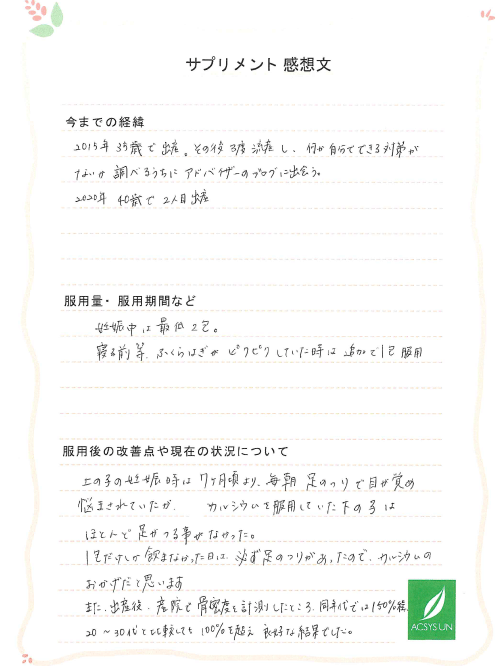 サプリメント 感想文
今までの経緯
2015年 35歳で出産。その後 3度 流産し、何か自分でできる対策が
ないか 調べるうちに アドバイザーのブログに出会う。
2020年 40歳で 2人目出産
服用量・服用期間など
妊娠中は 最低 2包。
寝る前等、ふくらはぎが ピクピクしていた時は 追加で1包 服用
服用後の改善点や現在の状況について
上の子の妊娠時は 7ヶ月頃より、毎朝 足のつりで目が覚め
悩まされていたが、 カルシウムを服用していた下の子は
ほとんど足がつる事がなかった。
1包だけしか飲まなかった日は、必ず足のつりがあったので、カルシウムの
おかげだと思います
また、出産後、産院で骨密度を計測したところ、同年代では150%
20〜30代と比較しても 100%を超え 良好な結果でした。
ACSYS UN